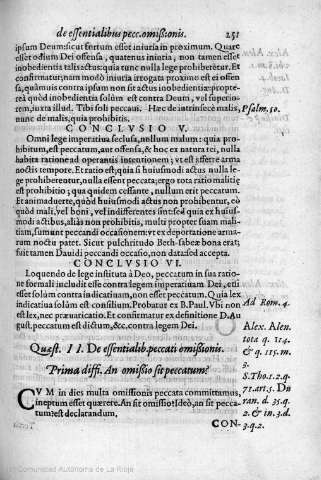 de essentialibus pecc. omißionis. 251
ipsum Deum: sicut furtum esset iniuria in proximum. Quare
esset odium Dei offensa, quatenus iniuria, non tamen esset
inobedientia talis actus: quia tunc nulla lege prohiberetur. Et
confirmatur, nam modò iniuria irrogata proximo est ei offen
sa, quamuis contra ipsum non sit actus inobedientiæ: propte-
reà quòd inobedientia solùm est contra Deum, vel superio-
rem, iuxta illud. Tibi soli peccaui. Hæc de intrinsecè malis,
nunc de malis, quia prohibitis.
Psalm. 50.
CONCLVSIO V.
Omni lege imperatiua seclusa, nullum malum: quia pro-
hibitum, est peccatum, aut offensa, & hoc ex natura rei, nulla
habita ratione ad operantis intentionem; vt est ferre arma
noctis tempore. Et ratio est; quia si huiusmodi actus nulla le-
ge prohiberentur, nulla esset peccata; ergo tota ratio malitiæ
est prohibitio; qua quidem cessante, nullum erit peccatum.
Et animaduerte, quòd huiusmodi actus non prohibentur, eò
quòd mali, vel boni, vel indifferentes sint: sed quia ex huius-
modi actibus, aliàs non prohibitis, multi propter suam mali-
tiam, sumunt peccandi occasionem: vt ex deportatione arma-
rum noctu patet. Sicut pulchritudo Beth-sabeæ bona erat;
fuit tamen Dauidi peccandi occasio, non data sed accepta.
CONCLVSIO VI.
Loquendo de lege instituta à Deo, peccatum in sua ratio-
ne formali includit esse contra legem imperatiuam Dei, etsi
esset solùm contra indicatiuam, non esset peccatum. Quia lex
indicatiua solùm est consilium. Probatur ex B. Paul. Vbi non
est lex, nec præuaricatio. Et confirmatur ex definitione D. Au
gust. peccatum est dictum, &c. contra legem Dei.
Ad Rom. 4.
Quæst. II. De essentialib. peccati omißionis.
Prima diffi. An omißio sit peccatum?
CVM in dies multa omissionis peccata committamus,
ineptum esset quærere. An sit omissio? Ideò, an sit pecca-
tum? est declarandum.
Alex. Alen.
tota q. 114.
& q. 115. m.
3.
S. Tho. 1. 2. q.
71. art. 5. Du
ran. d. 35. q.
2. & in. 3. d.
3. q. 2.
CON-
Comunidad Autónoma de La Rioja